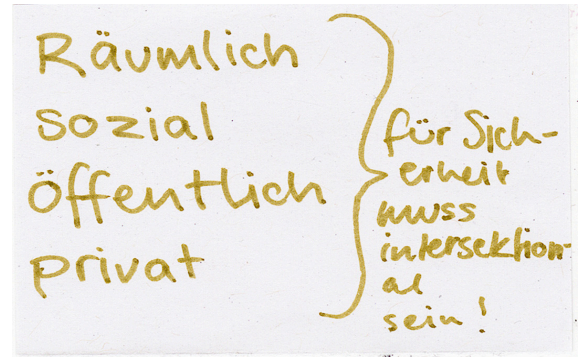 Räumlich
sozial
öffentlich
privat
für Sich-
erheit
muss
intersektion-
al
sein!